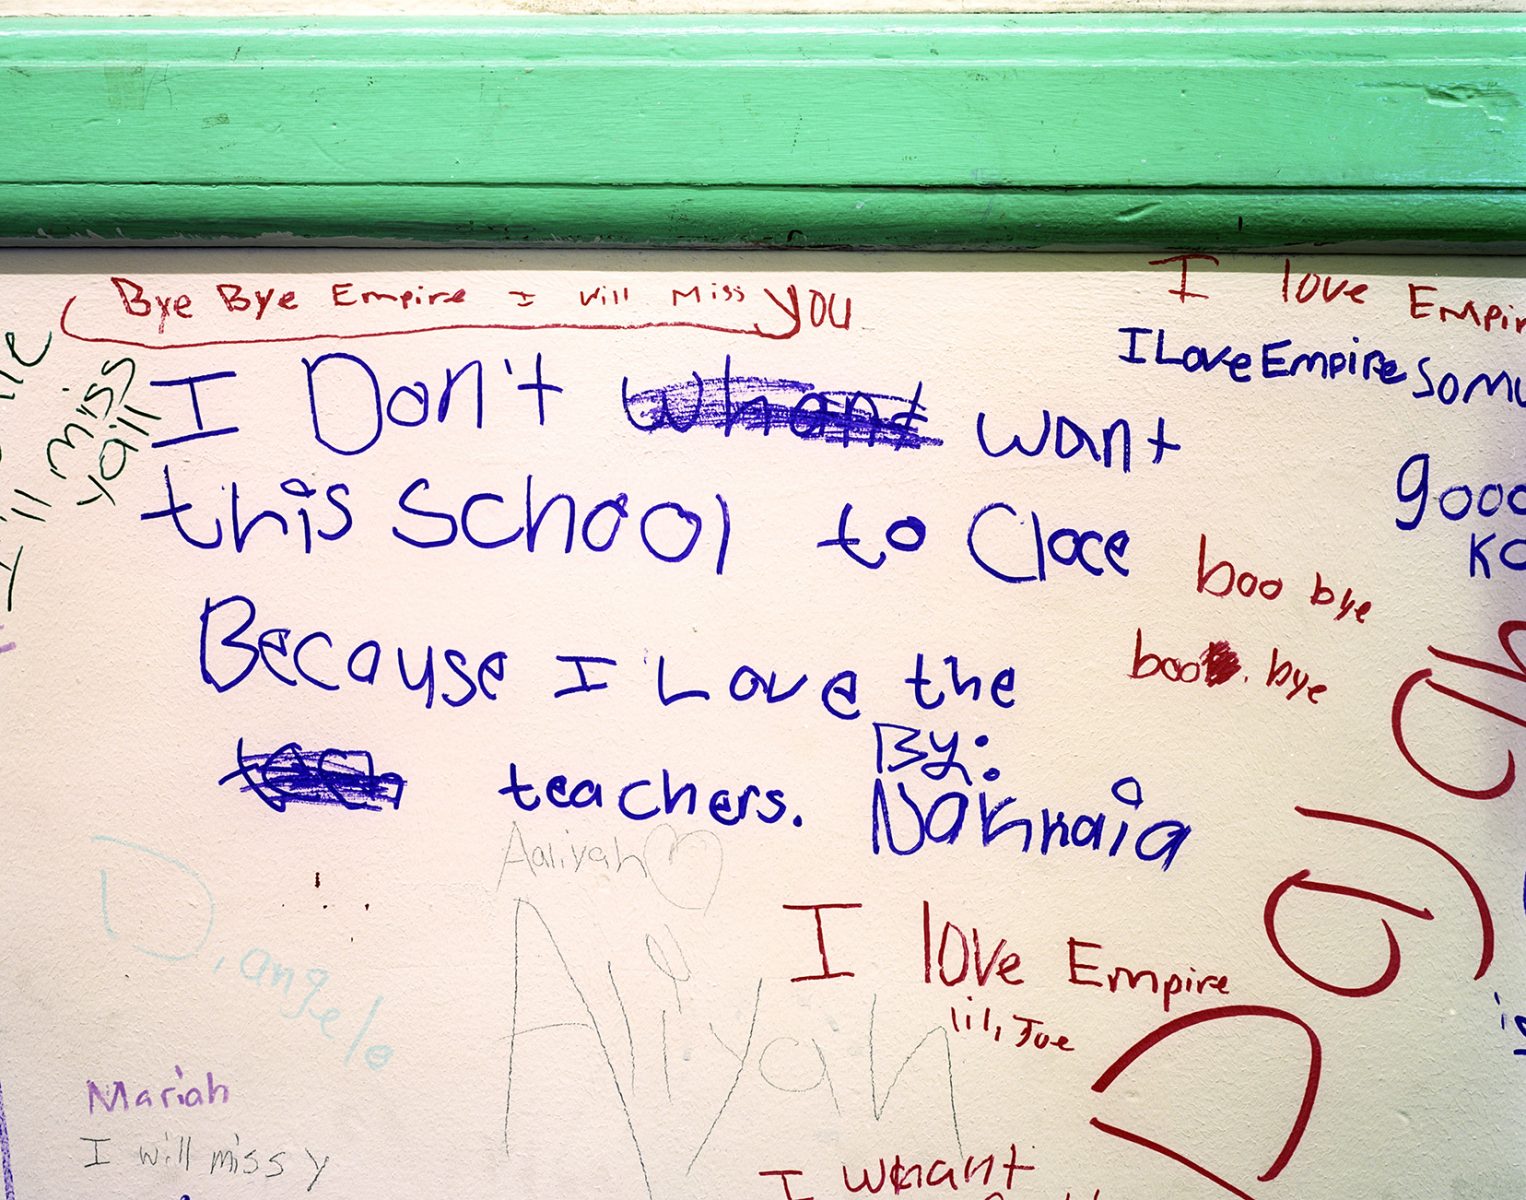 Bye Bye Empire I will Miss you
I love Empir
I Love Empire So mu
I'll miss
yall
I Don't want
this School to Cloce
Because I Love the
teachers. By:
Nakhaia
gooo
boo bye
boo. bye
Aaliyah
D, angelo
Aliyah
I love Empire
lil, Joe
Mariah
I will miss y
I whant